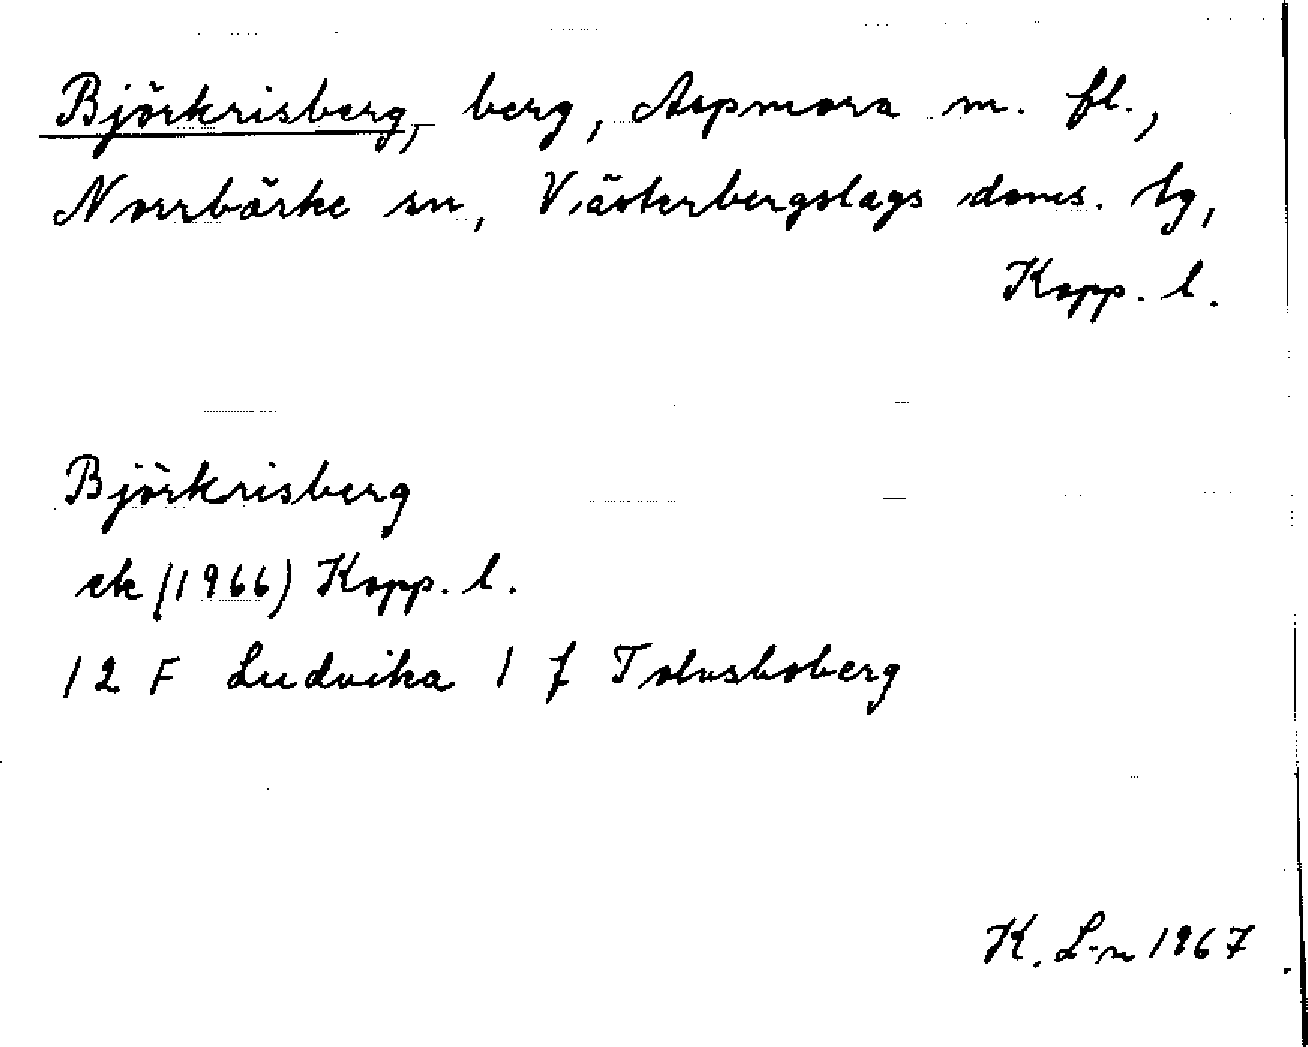 Björkrisberg, berg, Aspmora m. fl.,
Norrbärke sn, Västerbergslags doms. tg,
Kopp. l.
Björkrisberg
ek (1966) Kopp. l.
12 F Ludvika 1 f Tolvsboberg
K. L-n 1967